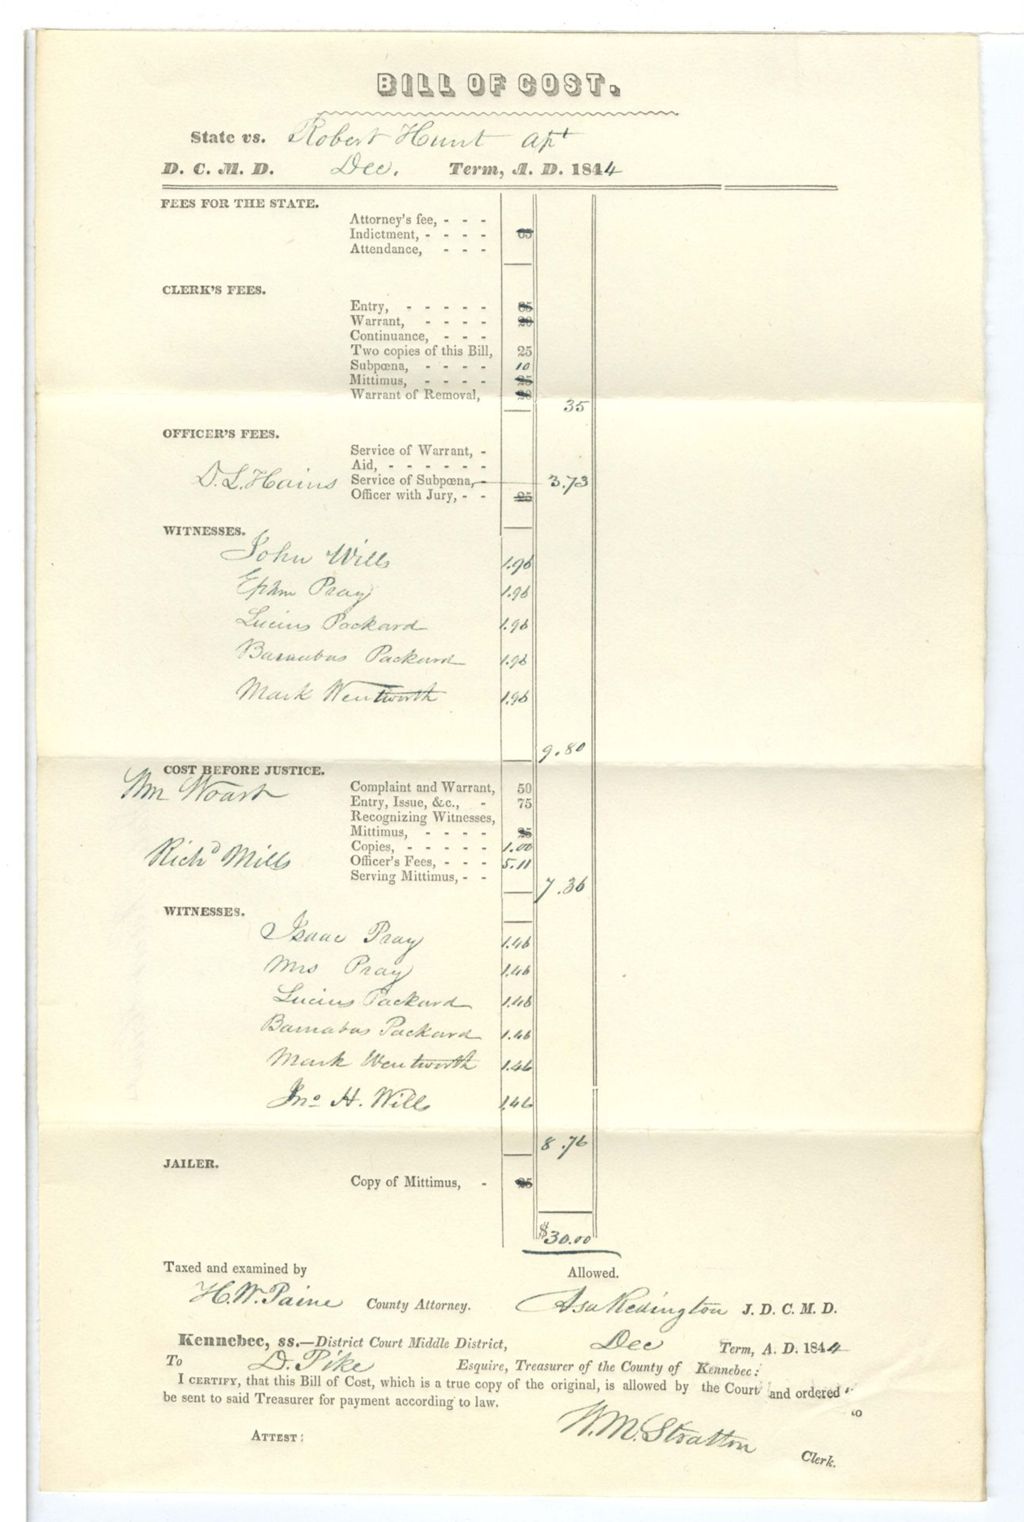 BILL OF COST.
State vs. Robert Hunt apt
D. C. M. D. Dec. Term, A. D. 1844
FEES FOR THE STATE.
Attorney's fee, - - -
Indictment, - - - - 65
Attendance, - - -
CLERK'S FEES.
Entry, - - - - -
Warrant, - - - - 20
Continuance, - - -
Two copies of this Bill, 25
Subpœna, - - - - 10
Mittimus, - - - - 25
Warrant of Removal, 20
35
OFFICER'S FEES.
Service of Warrant, -
Aid, - - - - - -
D. L. Hains Service of Subpœna, - 3.73
Officer with Jury, - - 25
WITNESSES.
John Wills 1.96
Ephm Pray 1.96
Lucius Packard 1.96
Barnabas Packard 1.96
Mark Wentworth 1.96
9.80
COST BEFORE JUSTICE.
Wm Woart Complaint and Warrant, 50
Entry, Issue, &c., - 75
Recognizing Witnesses,
Mittimus, - - - - 25
Copies, - - - - - 1.00
Richd Mills Officer's Fees, - - - 5.11
Serving Mittimus, - -
7.36
WITNESSES.
Isaac Pray 1.46
Mrs Pray 1.46
Lucius Packard 1.46
Barnabas Packard 1.46
Mark Wentworth 1.46
Jno H. Wills 1.46
8.76
JAILER.
Copy of Mittimus, - 25
$30.00
Taxed and examined by Allowed.
H. W. Paine County Attorney. Asa Redington J. D. C. M. D.
Kennebec, ss.—District Court Middle District, Dec Term, A. D. 1844
To D. Pike Esquire, Treasurer of the County of Kennebec:
I CERTIFY, that this Bill of Cost, which is a true copy of the original, is allowed by the Court and ordered to
be sent to said Treasurer for payment according to law.
ATTEST: W. M. Stratton Clerk.